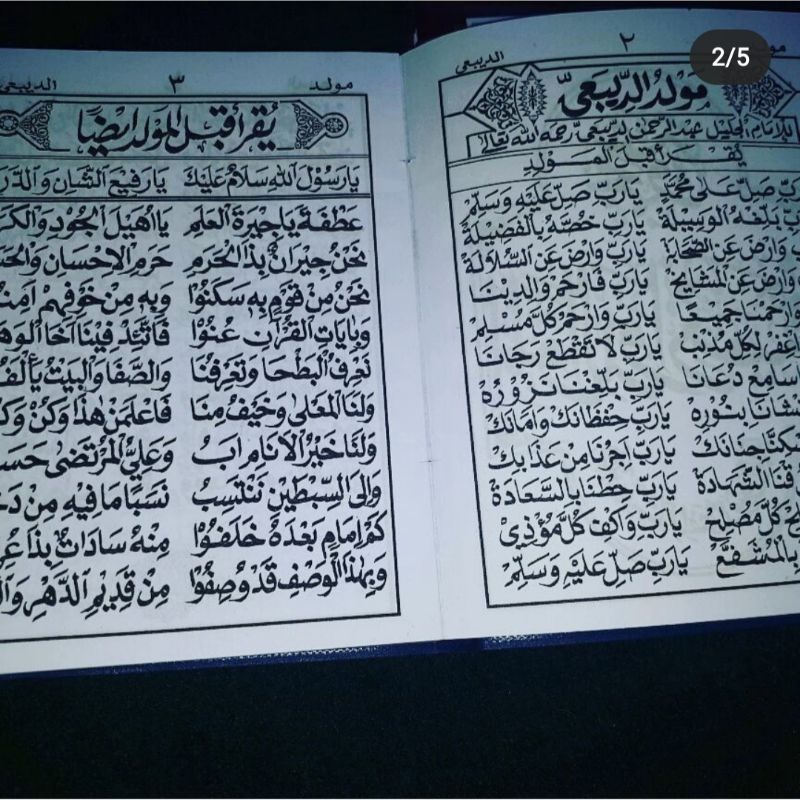 2/5
٢ الديبعي
مَوْلِدُ الدِّيْبَعِيّ
لِلْاِمَامِ الْجَلِيْلِ عَبْدِ الرَّحْمٰنِ الدِّيْبَعِي رَحِمَهُ اللهُ تَعَالٰى
يُقْرَأُ قَبْلَ الْمَوْلِدِ
صَلِّ عَلٰى مُحَمَّدٍ يَارَبِّ صَلِّ عَلَيْهِ وَسَلِّمْ
بَلِّغْهُ الْوَسِيْلَةَ يَارَبِّ خُصَّهُ بِالْفَضِيْلَةِ
وَارْضَ عَنِ الصَّحَابَةِ يَارَبِّ وَارْضَ عَنِ السُّلَالَةِ
وَارْضَ عَنِ الْمَشَايِخِ يَارَبِّ فَارْحَمْ وَالِدِيْنَا
وَارْحَمْنَا جَمِيْعًا يَارَبِّ وَارْحَمْ كُلَّ مُسْلِمٍ
اغْفِرْ لِكُلِّ مُذْنِبٍ يَارَبِّ لَا تَقْطَعْ رَجَانَا
سَامِعْ دُعَانَا يَارَبِّ بَلِّغْنَا نَزُوْرُهُ
بِنُوْرِهِ يَارَبِّ حِفْظَانَكَ وَاَمَانَكَ
جِنَانَكَ يَارَبِّ اَجِرْنَا مِنْ عَذَابِكَ
الشَّهَادَةَ يَارَبِّ حِطْنَا بِالسَّعَادَةِ
كُلَّ مُصْلِحٍ يَارَبِّ وَاكْفِ كُلَّ مُؤْذِيْ
بِالْمُشَفَّعْ يَارَبِّ صَلِّ عَلَيْهِ وَسَلِّمْ
مولد ٣ الديبعي
يُقْرَأُ قَبْلَ الْمَوْلِدِ اَيْضًا
يَارَسُوْلَ اللهِ سَلَامٌ عَلَيْكَ يَارَفِيْعَ الشَّانِ وَالدَّرَ
عَطْفَةً يَاجِيْرَةَ الْعَلَمِ يَااُهَيْلَ الْجُوْدِ وَالْكَرَ
نَحْنُ جِيْرَانٌ بِذَا الْحَرَمِ حَرَمِ الْاِحْسَانِ وَالْحَ
نَحْنُ مِنْ قَوْمٍ بِهِ سَكَنُوْا وَبِهِ مِنْ خَوْفِهِمْ اَمِنُ
وَبِاٰيَاتِ الْقُرْاٰنِ عُنُوْا فَاتَّئِدْ فِيْنَا اَخَا الْوَهَ
نَعْرِفُ الْبَطْحَا وَتَعْرِفُنَا وَالصَّفَا وَالْبَيْتُ يَأْلَفُ
وَلَنَا الْمَعْلٰى وَخَيْفُ مِنَا فَاعْلَمَنْ هٰذَا وَكُنْ وَكُ
وَلَنَا خَيْرُ الْاَنَامِ اَبُ وَعَلِيُّ الْمُرْتَضٰى حَسَ
وَاِلَى السِّبْطَيْنِ نَنْتَسِبُ نَسَبًا مَا فِيْهِ مِنْ دَخَ
كَمْ اِمَامٍ بَعْدَهُ خَلَفُوْا مِنْهُ سَادَاتٌ بِذَا عُرِ
وَبِهٰذَا الْوَصْفِ قَدْ وُصِفُوْا مِنْ قَدِيْمِ الدَّهْرِ وَالْ